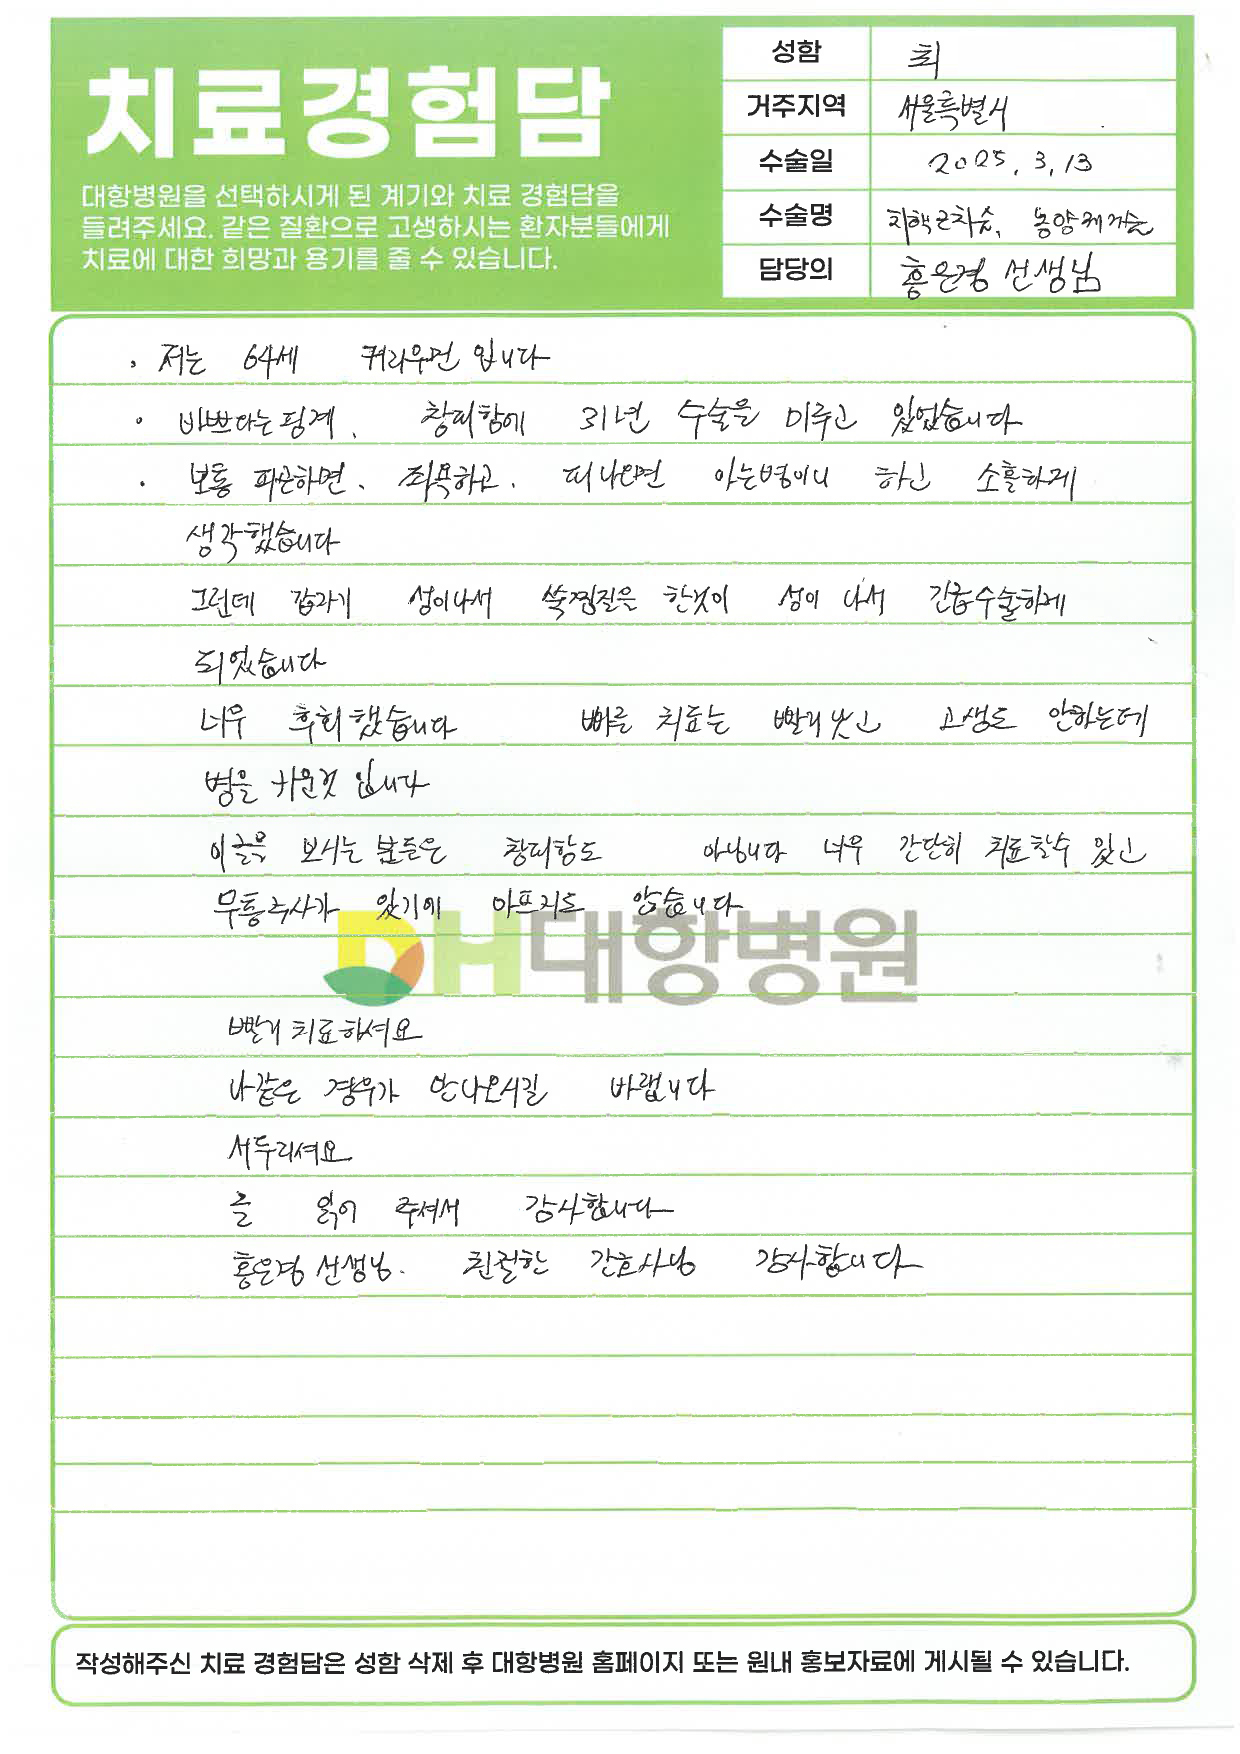 치료경험담
대항병원을 선택하시게 된 계기와 치료 경험담을
들려주세요. 같은 질환으로 고생하시는 환자분들에게
치료에 대한 희망과 용기를 줄 수 있습니다.
성함 최
거주지역 서울특별시
수술일 2025. 3, 13
수술명 치핵근치술, 농양제거술
담당의 홍은경 선생님
, 저는 64세 커리우먼 입니다
· 바쁘다는핑계, 창피함에 31년 수술을 미루고 있었습니다
· 보통 피곤하면, 좌욕하고, 떠나면 아는병이니 하고 소홀하게
생각했습니다
그런데 갑자기 성이나서 쑥찜질은 한것이 성이 나서 긴급수술하게
되었습니다
너무 후회했습니다 빠른 치료는 빨리낫고 고생도 안하는데
병을 키운것 입니다
이글을 보시는 분들은 창피함도 아닙니다 너무 간단히 치료할수 있고
무통주사가 있기에 아프지도 않습니다
DH대항병원
빨리 치료하셔요
나같은 경우가 안나오시길 바랍니다
서두리셔요
글 읽어 주셔서 감사합니다
홍은경 선생님. 친절한 간호사님 감사합니다
작성해주신 치료 경험담은 성함 삭제 후 대항병원 홈페이지 또는 원내 홍보자료에 게시될 수 있습니다.